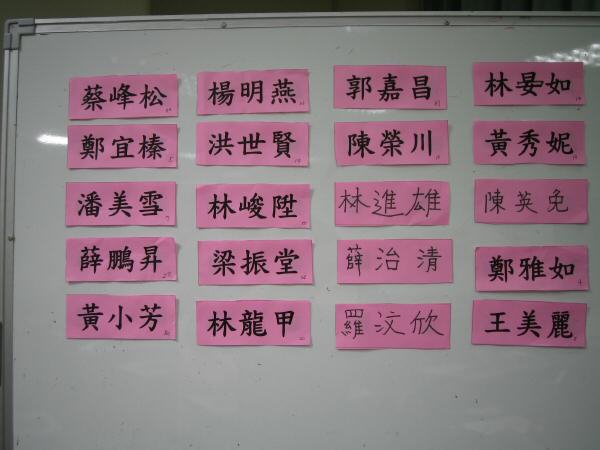 蔡峰松 楊明燕 郭嘉昌 林晏如
鄭宜榛 洪世賢 陳榮川 黃秀妮
潘美雪 林峻陞 林進雄 陳英免
薛鵬昇 梁振堂 薛治清 鄭雅如
黃小芳 林龍甲 羅汶欣 王美麗